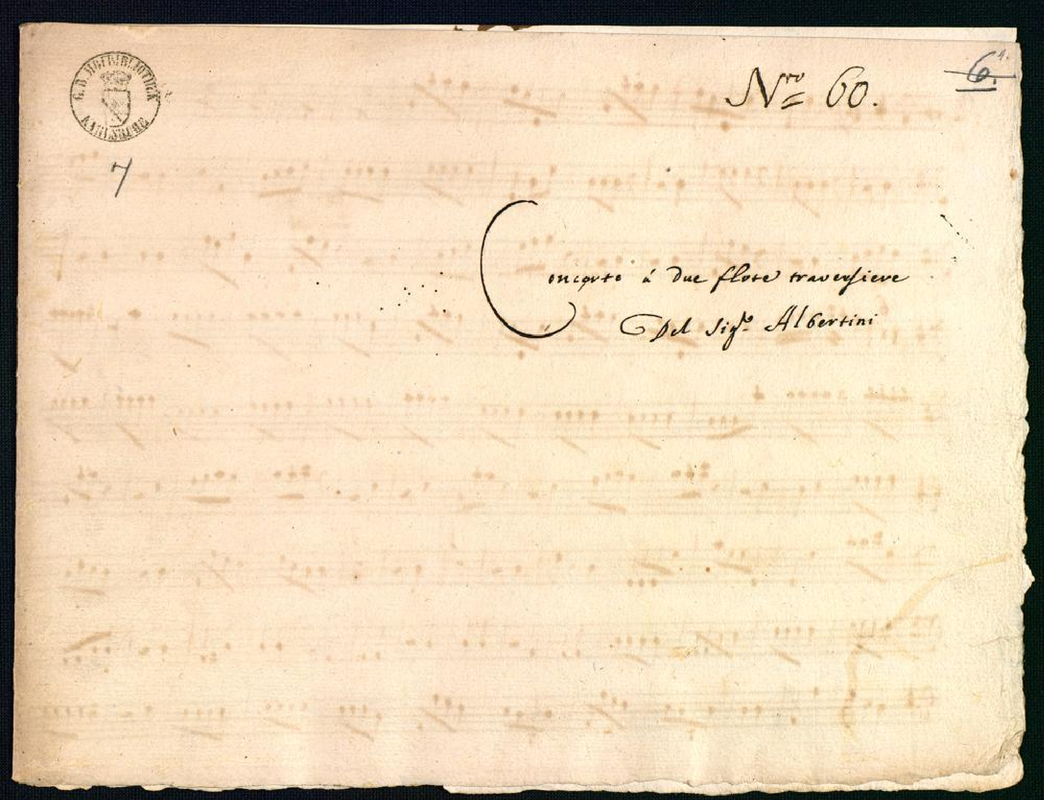 G. H. HOFBIBLIOTHEK
KARLSRUHE
Nro 60.
6.
7
Concerto á due flote traversiere
Del Sigr. Albertini